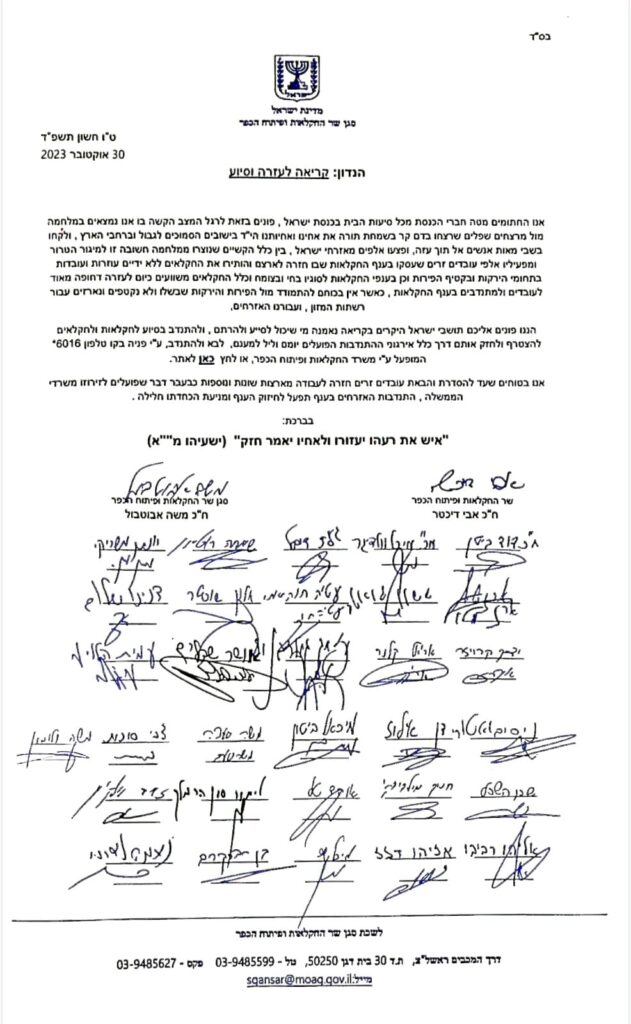 בס"ד
מדינת ישראל
סגן שר החקלאות ופיתוח הכפר
ט"ו חשון תשפ"ד
30 אוקטובר 2023
הנדון: קריאה לעזרה וסיוע
אנו החתומים מטה חברי הכנסת מכל סיעות הבית בכנסת ישראל , פונים בזאת לרגל המצב הקשה בו אנו נמצאים במלחמה
מול מרצחים שפלים שרצחו בדם קר בשמחת תורה את אחינו ואחיותנו הי"ד בישובים הסמוכים לגבול וברחבי הארץ , ולקחו
בשבי מאות אנשים אל תוך עזה, ופצעו אלפים מאזרחי ישראל , בין כלל הקשיים שנוצרו ממלחמה חשובה זו למיגור הטרור
ומפעיליו אלפי עובדים זרים שעסקו בענף החקלאות שבו חזרה לארצם והותירו את החקלאים ללא ידיים עוזרות ועובדות
בתחומי הירקות ובקטיף הפירות וכן בענפי החקלאות לסוגיו בחי ובצומח וכלל החקלאים משוועים כיום לעזרה דחופה מאוד
לעובדים ולמתנדבים בענף החקלאות , כאשר אין בכוחם להתמודד מול הפירות והירקות שבשלו ולא נקטפים ונארזים עבור
רשתות המזון , ועבורנו האזרחים.
הננו פונים אליכם תושבי ישראל היקרים בקריאה נאמנה מי שיכול לסייע ולהרתם , ולהתנדב בסיוע לחקלאות ולחקלאים
להצטרף ולחזק אותם דרך כלל אירגוני ההתנדבות הפועלים יומם וליל למענם , לבא ולהתנדב, ע"י פניה בקו טלפון 6016*
המופעל ע"י משרד החקלאות ופיתוח הכפר, או לחץ כאן לאתר.
אנו בטוחים שעד להסדרת והבאת עובדים זרים חזרה לעבודה מארצות שונות ונוספות כבעבר דבר שפועלים לזירוזו משרדי
הממשלה , התנדבות האזרחים בענף תפעל לחיזוק הענף ומניעת הכחדתו חלילה .
בברכת:
"איש את רעהו יעזורו ולאחיו יאמר חזק" (ישעיהו מ""א)
שר החקלאות ופיתוח הכפר
ח"כ אבי דיכטר
סגן שר החקלאות ופיתוח הכפר
ח"כ משה אבוטבול
ח"כ דוד ביטן
יצחק קרויזר אריאל קלנר עמית הלוי
דן אילוז מיכאל ביטון משה סעדה צבי סוכות משה סולומון
ששון גואטה
חנוך מילביצקי אוהד טל לימור סון הר מלך
אליהו רביבו
לשכת סגן שר החקלאות ופיתוח הכפר
דרך המכבים ראשל"צ, ת.ד 30 בית דגן 50250, טל - 03-9485599 פקס - 03-9485627
מייל:sgansar@moag.gov.il